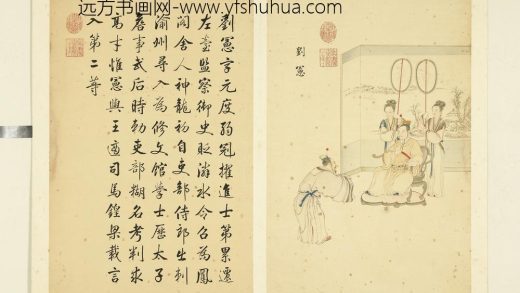 远方书画网-www.yfshuhua.com
劉憲
劉憲字元度弱冠擢進士第累遷
左臺監察御史貶潾水令召為鳳
閣舍人神龍初自吏部侍郎出刺
渝州尋入為修文館學士歷太子
詹事武后時勅吏部糊名考判求
高才惟憲與王適司馬鍠梁載言
入第二等